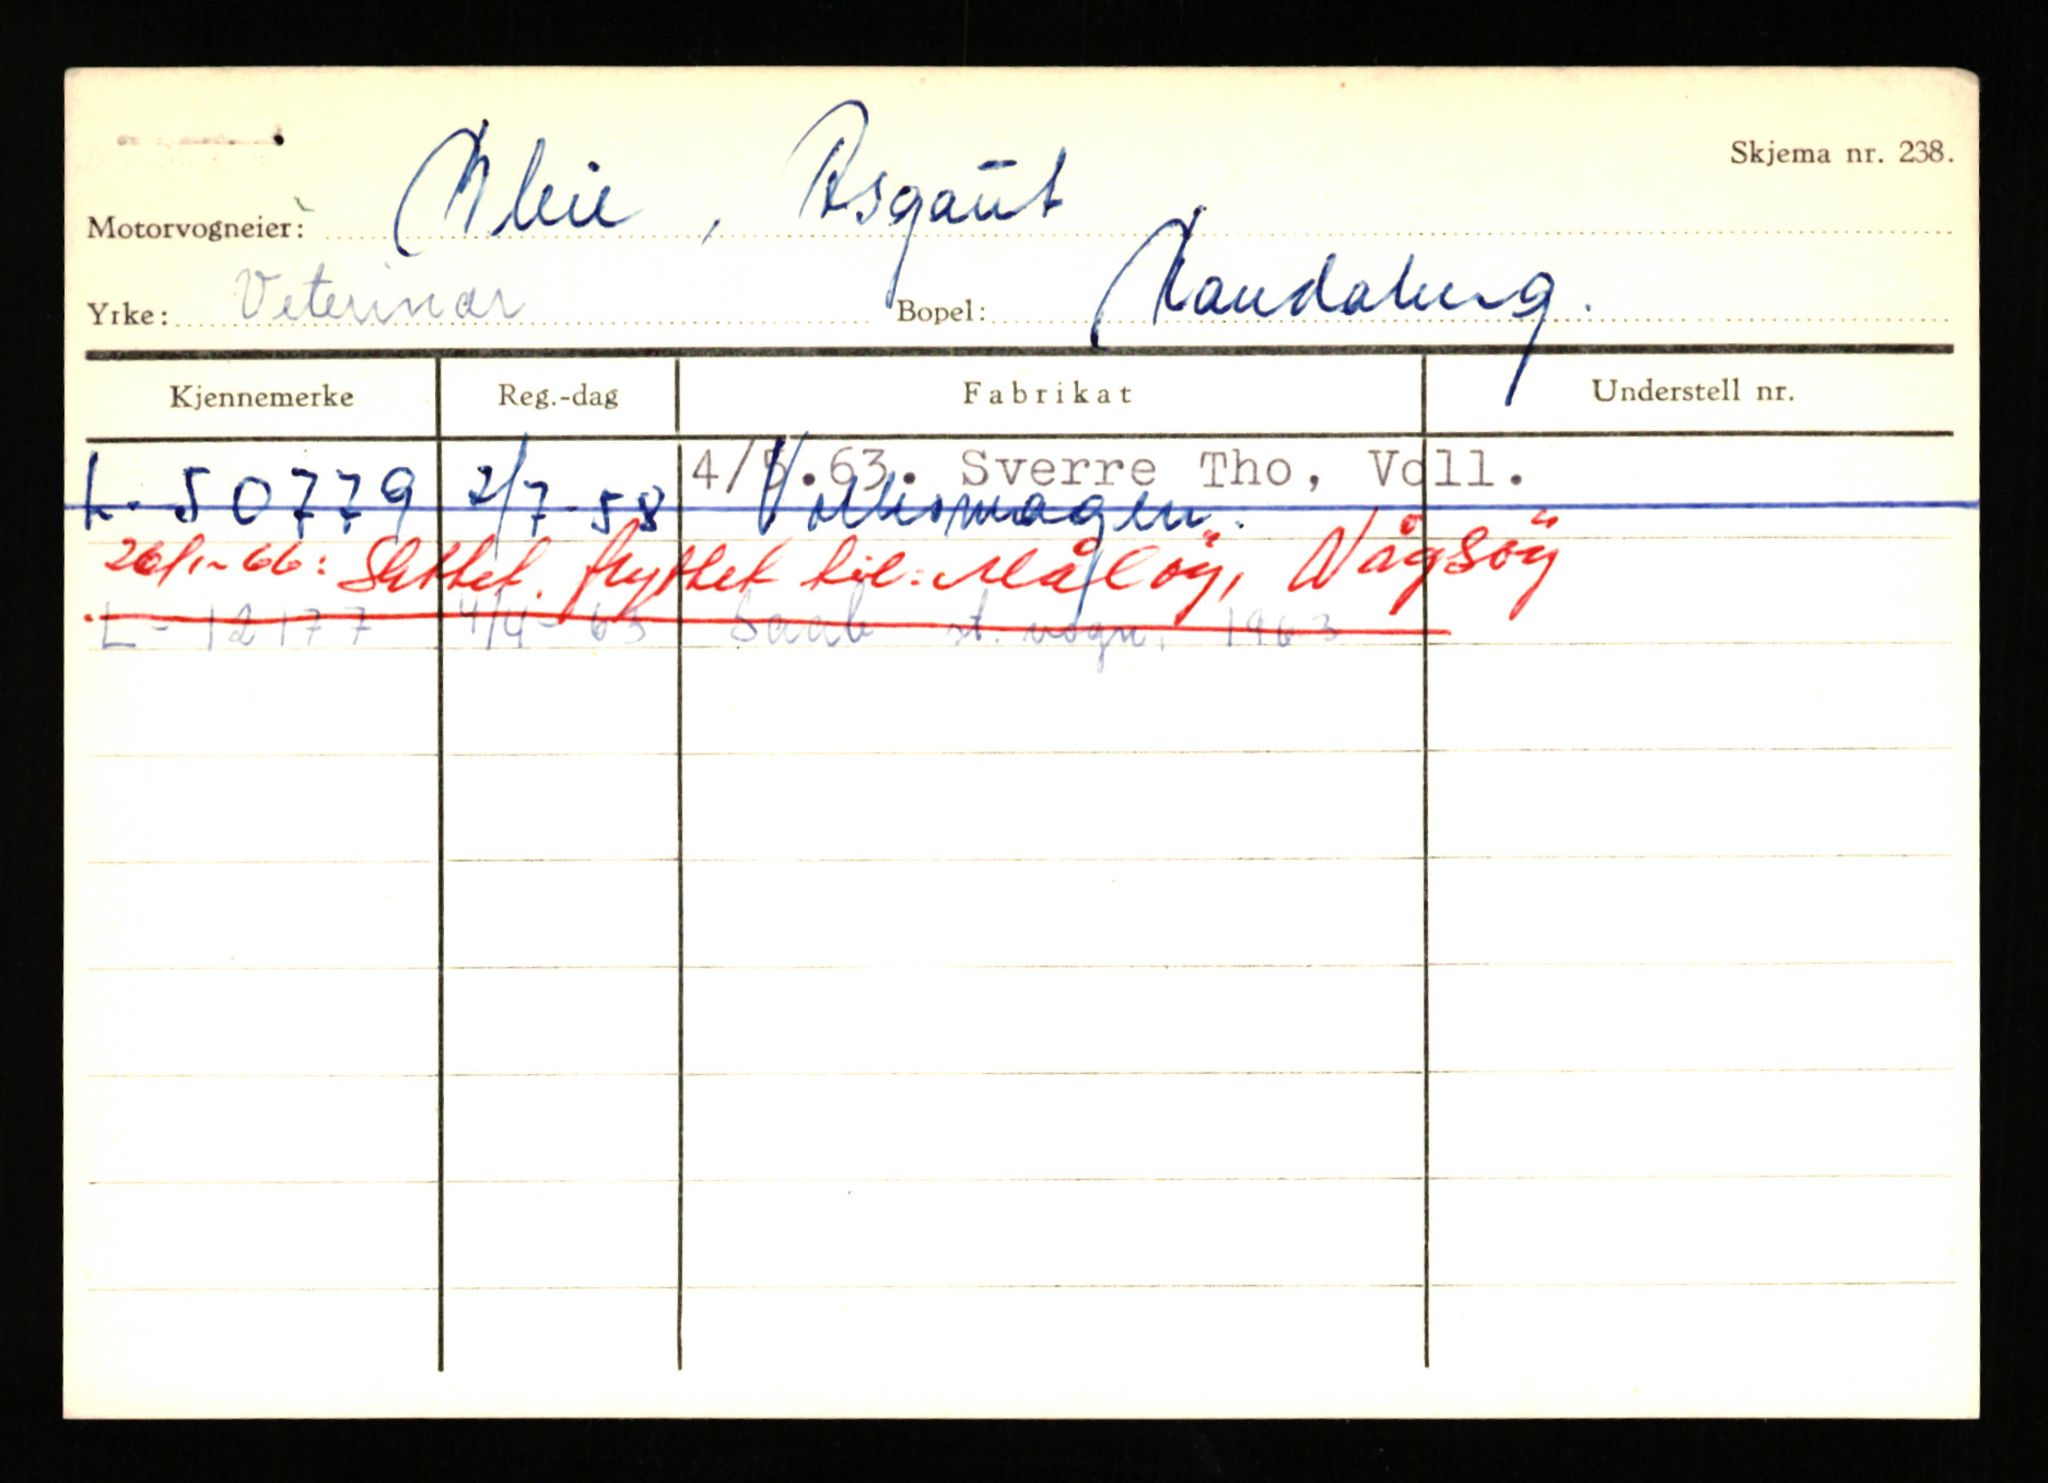 Skjema nr. 238.
Motorvogneier: Kleie, Asgaut
Yrke: Veterinær Bopel: Randaberg.
Kjennemerke Reg.-dag Fabrikat Understell nr.
4/5.63. Sverre Tho, Voll.
L-50779 2/7-58 Volkswagen.
26/1-66: Slettet. flyttet til: Måløy, Vågsøy
L-12177 4/4-63 Saab st. vogn. 1963